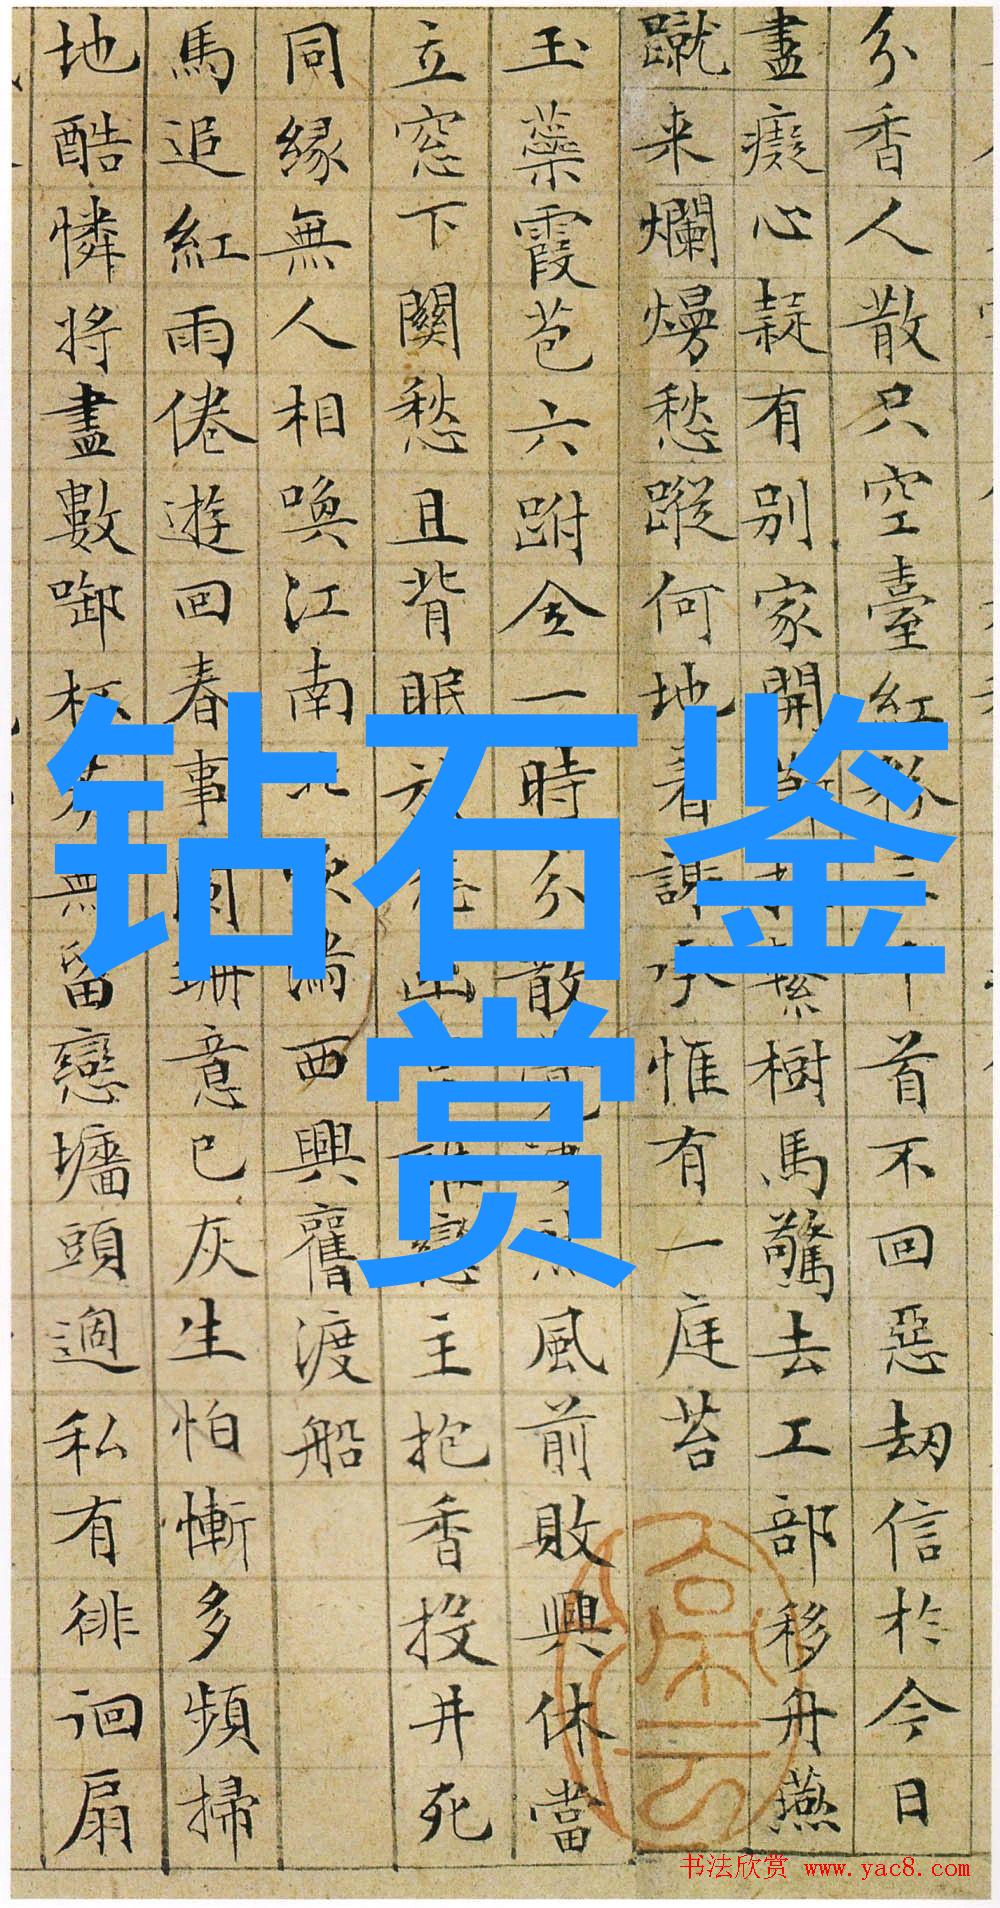 分香人散只空臺紅粉三千首不回惡劫信於今日
盡癡心疑有别家開繫樹馬驚去工部移舟燕
蹴来爛熳愁蹤何地着謝承惟有一庭苔
玉蘂霞苞六跗全一時分散覺風前敗興休當
立窓下關愁且背眠放戀主抱香投井死
同緣無人相喚江南北吹滿西興舊渡船
馬追紅雨倦遊回春事闌珊意已灰生怕慚多頻掃
地酷憐將盡數啣杯無留戀墻頭過私有徘徊扇
钻石鉴
赏
书法欣赏 www.yac8.com